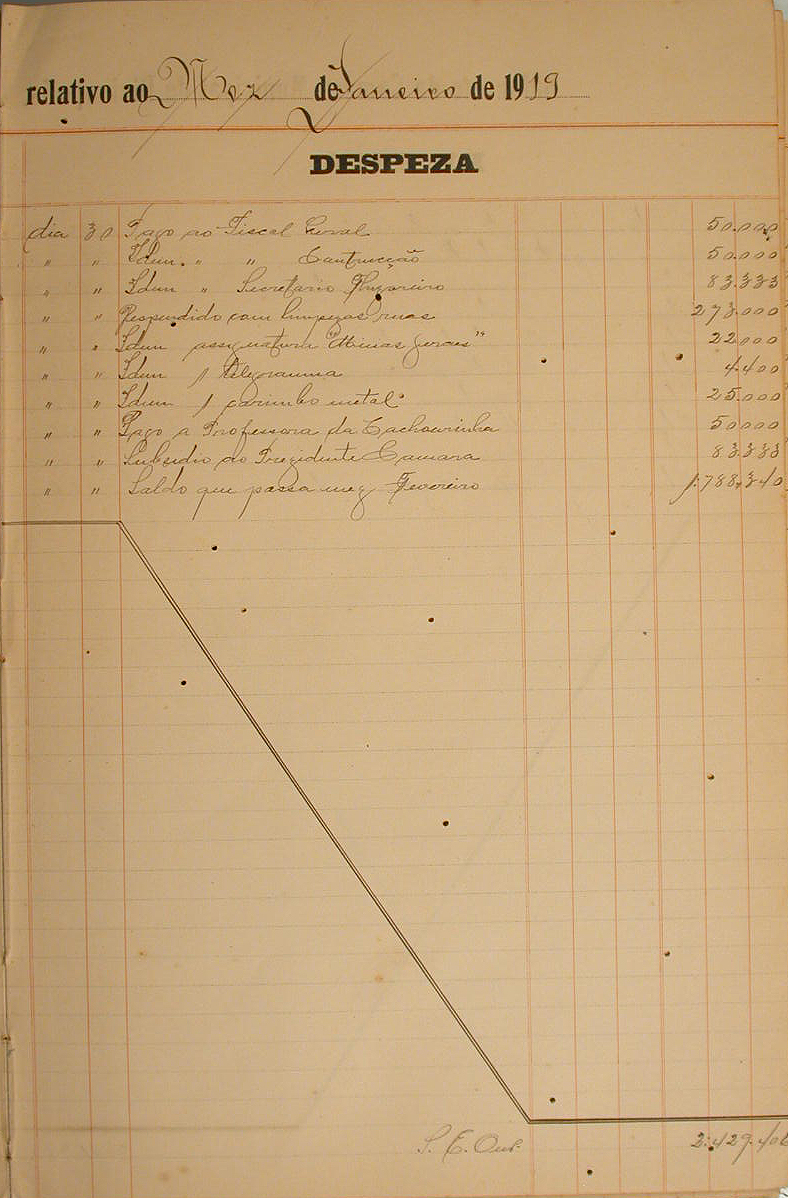 relativo ao Mez de Janeiro de 1919
DESPEZA
dia 30 Pago ao Fiscal Geral 50.000
" " Idem " " 50.000
" " Idem " Secretario Thezoreiro 83.333
" " Despendido com limpezas ruas 273.000
" " Idem assignatura "Minas Geraes" 22.000
" " Idem 1 telegramma 4.400
" " Idem 1 carimbo metal 25.000
" " Pago a Professora da Cachoeirinha 50.000
" " Subsidio ao Prezidente Camara 83.333
" " Saldo que passa mez Fevereiro 1:788.340
S. E. Out. 2:429.406